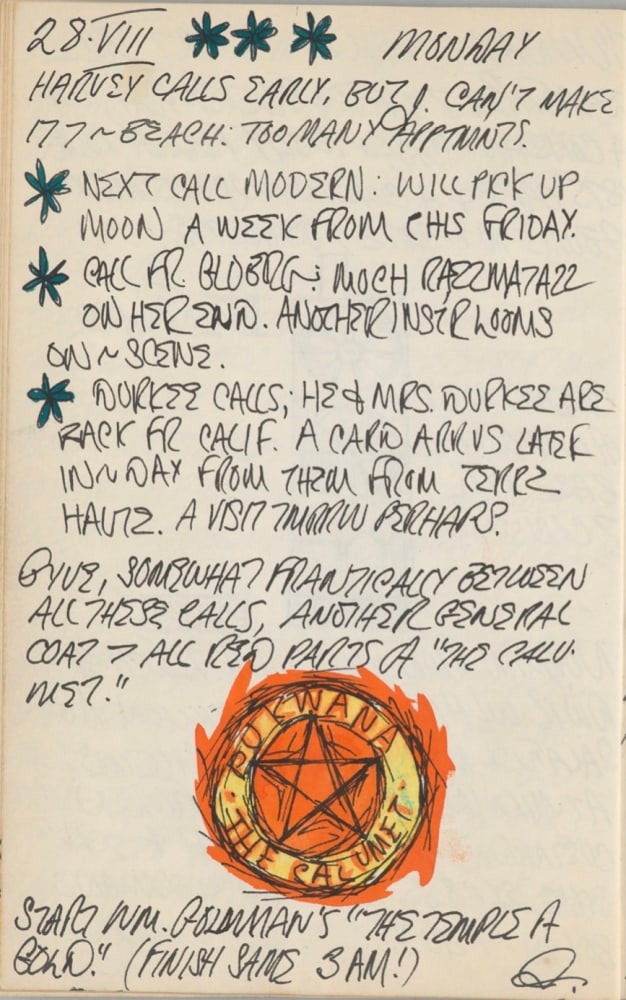 28·VIII MONDAY
HARVEY CALLS EARLY, BUT I CAN'T MAKE
IT T ~ BEACH: TOO MANY APPTMNTS.
NEXT CALL MODERN: WILL PICK UP
MOON A WEEK FROM THIS FRIDAY.
CALL FR. MUCH RAZZMATAZZ
ON HER END. ANOTHER INST'R LOOMS
ON ~ SCENE.
DURKEE CALLS; HE & MRS. DURKEE ARE
BACK FR CALIF. A CARD ARRVS LATER
IN ~ DAY FROM THEM FROM TERRE
HAUTE. A VISIT TMORRW PERHAPS.
GYVE, SOMEWHAT FRANTICALLY BETWEEN
ALL THESE CALLS, ANOTHER GENERAL
COAT T ALL RED PARTS O "THE CALU-
MET."
PUKWANA
·THE CALUMET·
START WM. GOLDMAN'S "THE TEMPLE O
GOLD." (FINISH SAME 3 AM!)